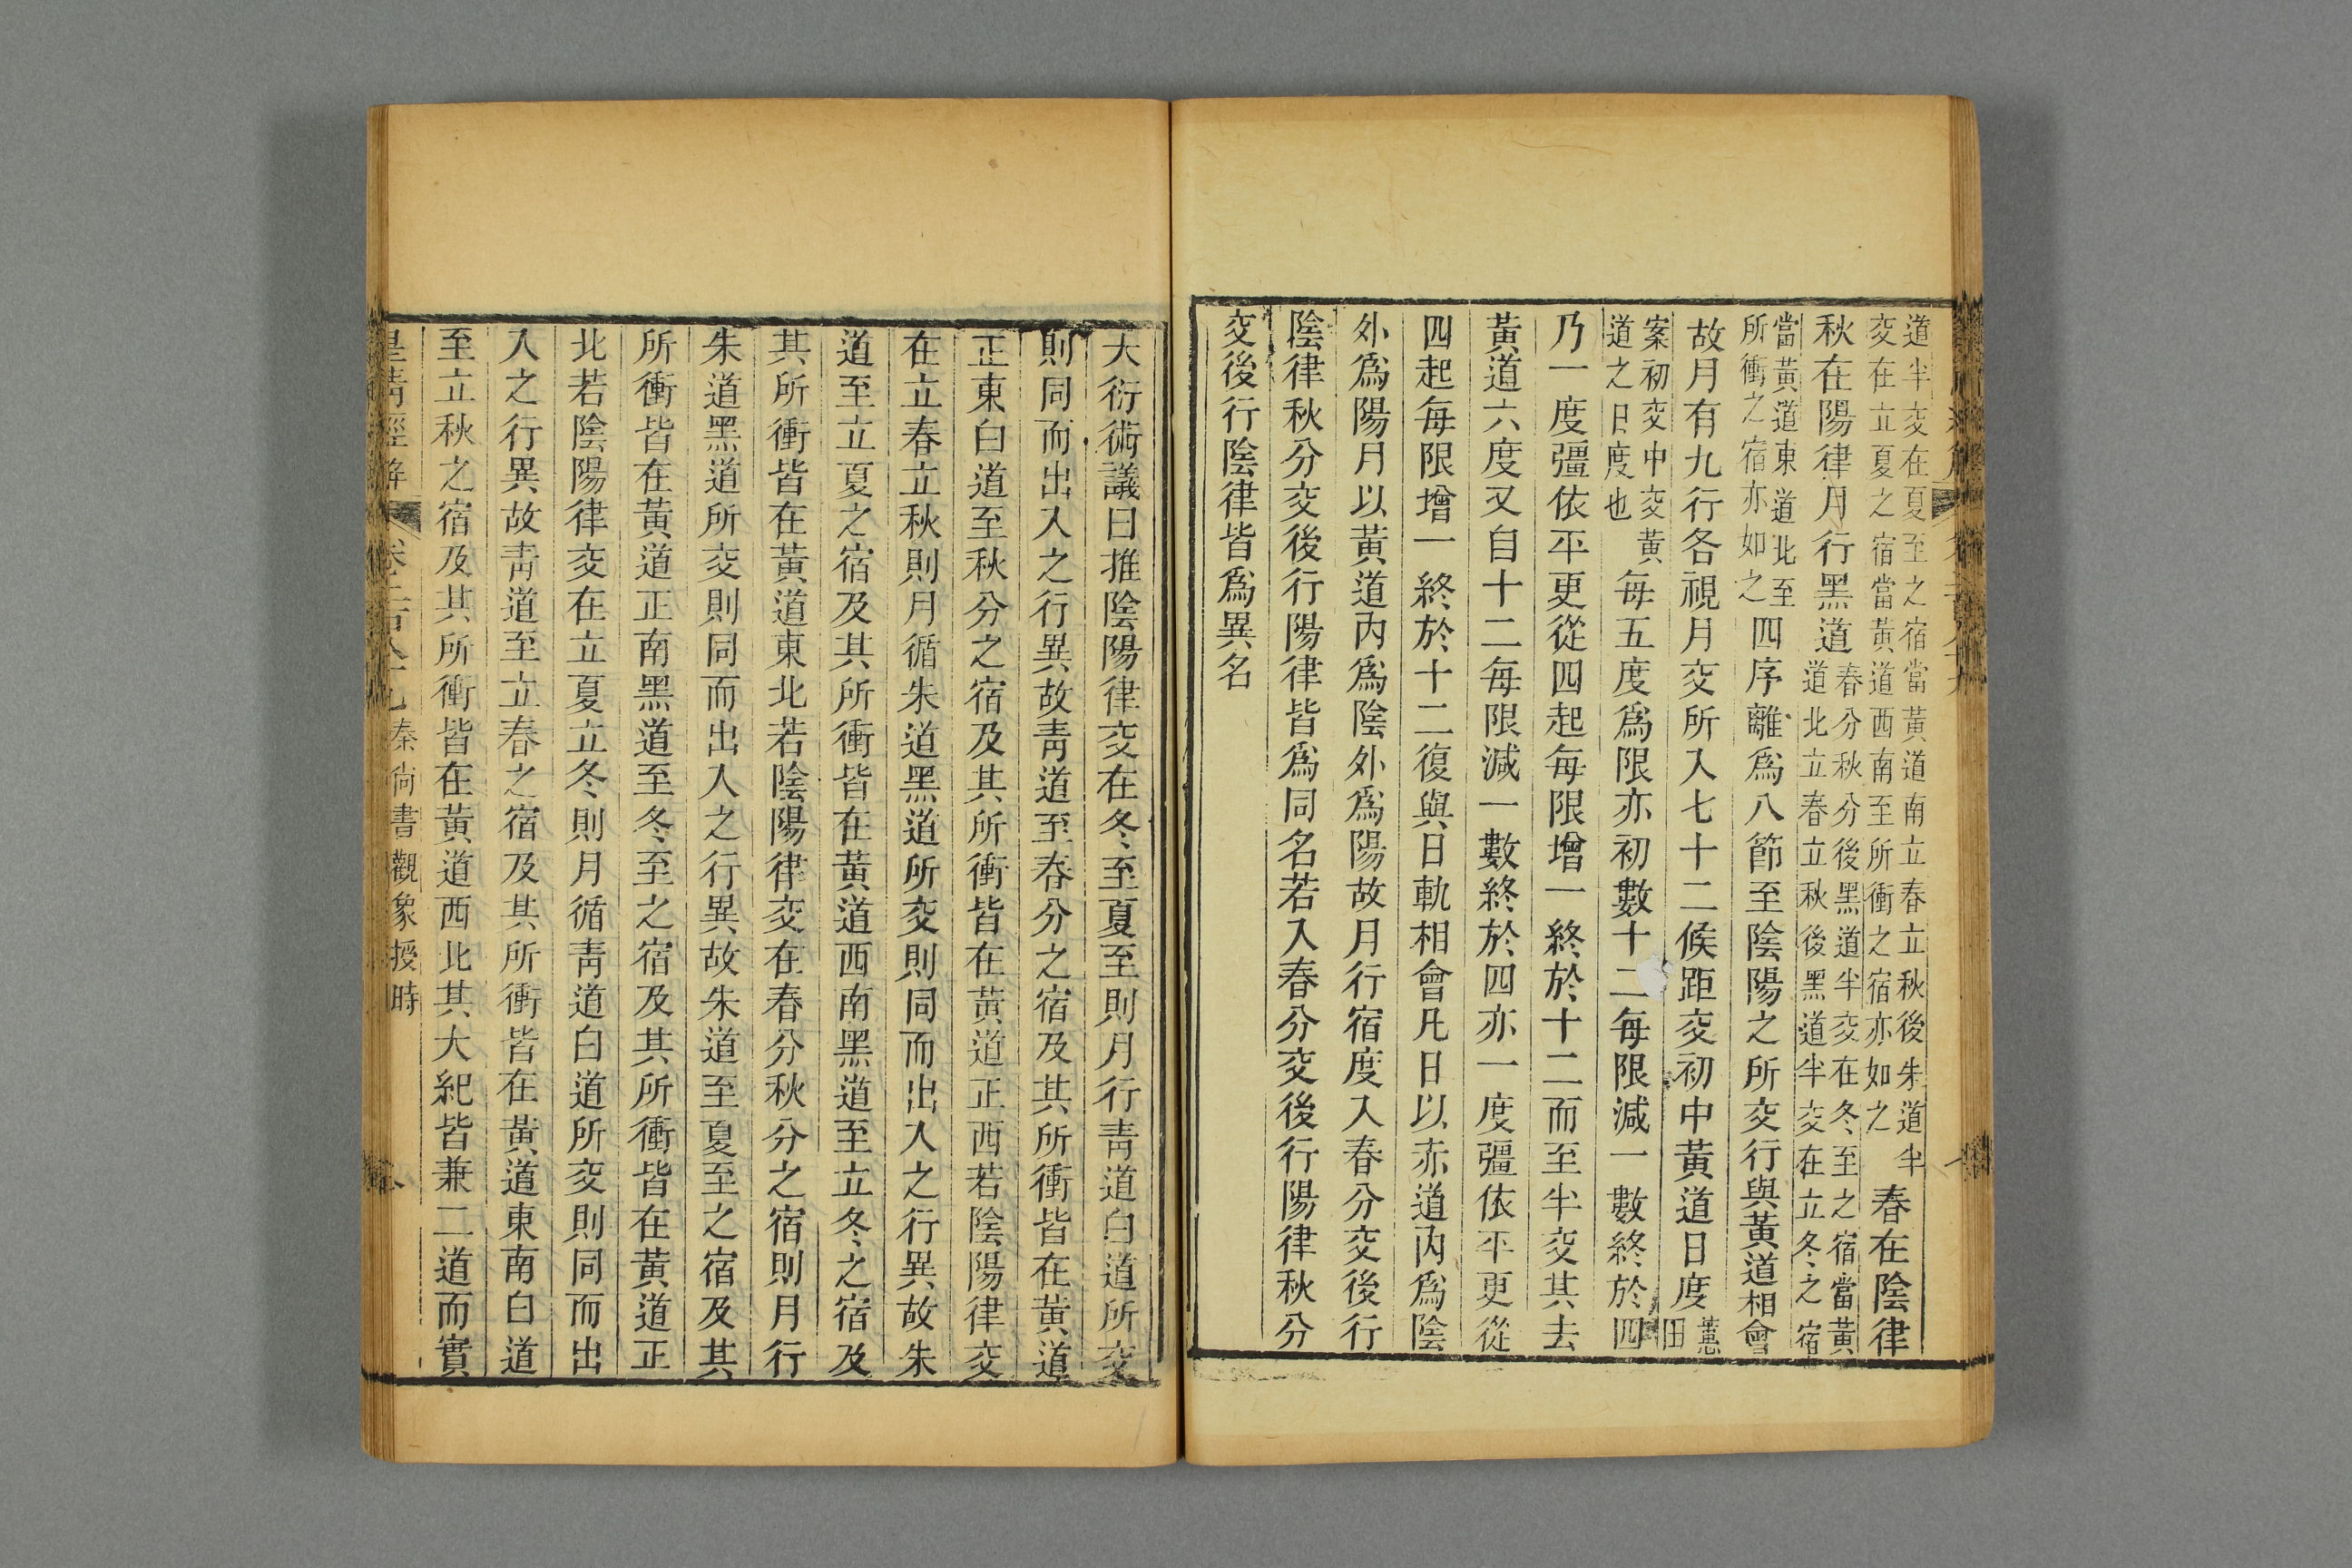 道半交在夏至之宿當黃道南立春立秋後朱道半
交在立夏之宿當黃道西南至所衝之宿亦如之
春在陰律
秋在陽律月行黑道
春分秋分後黑道半交在冬至之宿當黃
道北立春立秋後黑道半交在立冬之宿
當黃道東道北至
所衝之宿亦如之
四序離爲八節至陰陽之所交行與黃道相會
故月有九行各視月交所入七十二候距交初中黃道日度
蕙
田
案初交中交黃
道之日度也
每五度爲限亦初數十二每限減一數終於四
乃一度彊依平更從四起每限增一終於十二而至半交其去
黃道六度又自十二每限減一數終於四亦一度彊依平更從
四起每限增一終於十二復與日軌相會凡日以赤道內爲陰
外爲陽月以黃道內爲陰外爲陽故月行宿度入春分交後行
陰律秋分交後行陽律皆爲同名若入春分交後行陽律秋分
交後行陰律皆爲異名
大衍術議曰推陰陽律交在冬至夏至則月行青道白道所交
則同而出入之行異故青道至春分之宿及其所衝皆在黃道
正東白道至秋分之宿及其所衝皆在黃道正西若陰陽律交
在立春立秋則月循朱道黑道所交則同而出入之行異故朱
道至立夏之宿及其所衝皆在黃道西南黑道至立冬之宿及
其所衝皆在黃道東北若陰陽律交在春分秋分之宿則月行
朱道黑道所交則同而出入之行異故朱道至夏至之宿及其
所衝皆在黃道正南黑道至冬至之宿及其所衝皆在黃道正
北若陰陽律交在立夏立冬則月循青道白道所交則同而出
入之行異故青道至立春之宿及其所衝皆在黃道東南白道
至立秋之宿及其所衝皆在黃道西北其大紀皆兼二道而實
皇清經解 卷二百八十九 秦尚書觀象授時 八